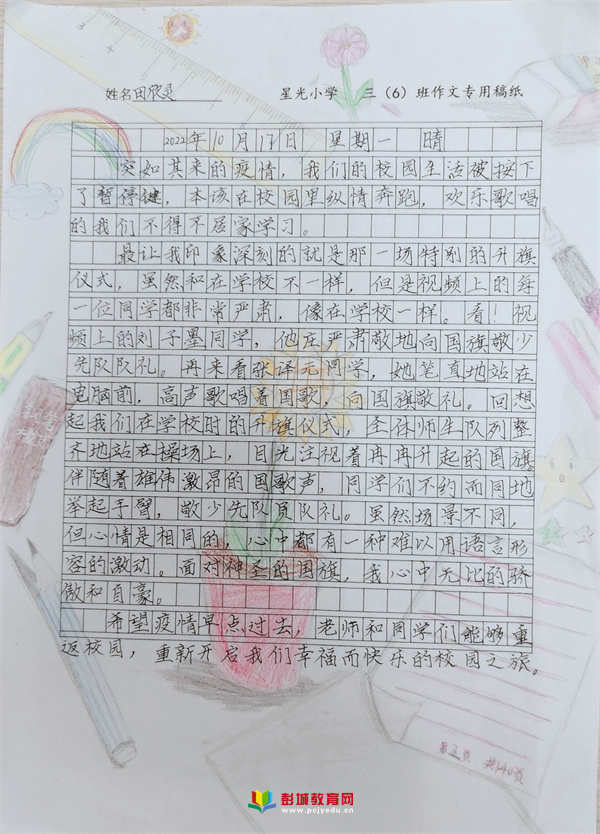 姓名田欣灵 星光小学 三（6）班作文专用稿纸
2022年10月17日 星期一 晴
突如其来的疫情，我们的校园生活被按下
了暂停键，本该在校园里纵情奔跑，欢乐歌唱
的我们不得不居家学习。
最让我印象深刻的就是那一场特别的升旗
仪式，虽然和在学校不一样，但是视频上的每
一位同学都非常严肃，像在学校一样。看！视
频上的刘子墨同学，他庄严肃敬地向国旗敬少
先队队礼。再来看张译元同学，她笔直地站在
电脑前，高声歌唱着国歌，向国旗敬礼。回想
起我们在学校时的升旗仪式，全体师生队列整
齐地站在操场上，目光注视着冉冉升起的国旗
伴随着雄伟激昂的国歌声，同学们不约而同地
举起手臂，敬少先队员队礼。虽然场景不同，
但心情是相同的，心中都有一种难以用语言形
容的激动。面对神圣的国旗，我心中无比的骄
傲和自豪。
希望疫情早点过去，老师和同学们能够重
返校园，重新开启我们幸福而快乐的校园之旅。
彭城教育网
www.pcjyedu.cn